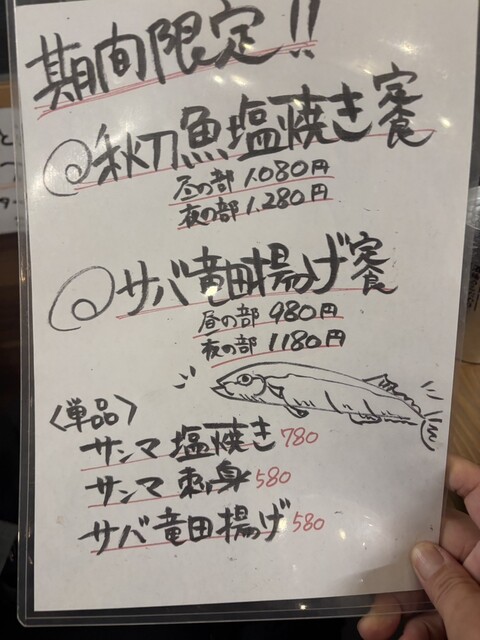 期間限定!!
◎秋刀魚塩焼き定食
昼の部 1.080円
夜の部 1.280円
◎サバ竜田揚げ定食
昼の部 980円
夜の部 1180円
〈単品〉
サンマ 塩焼き 780
サンマ 刺身 580
サバ竜田揚げ 580